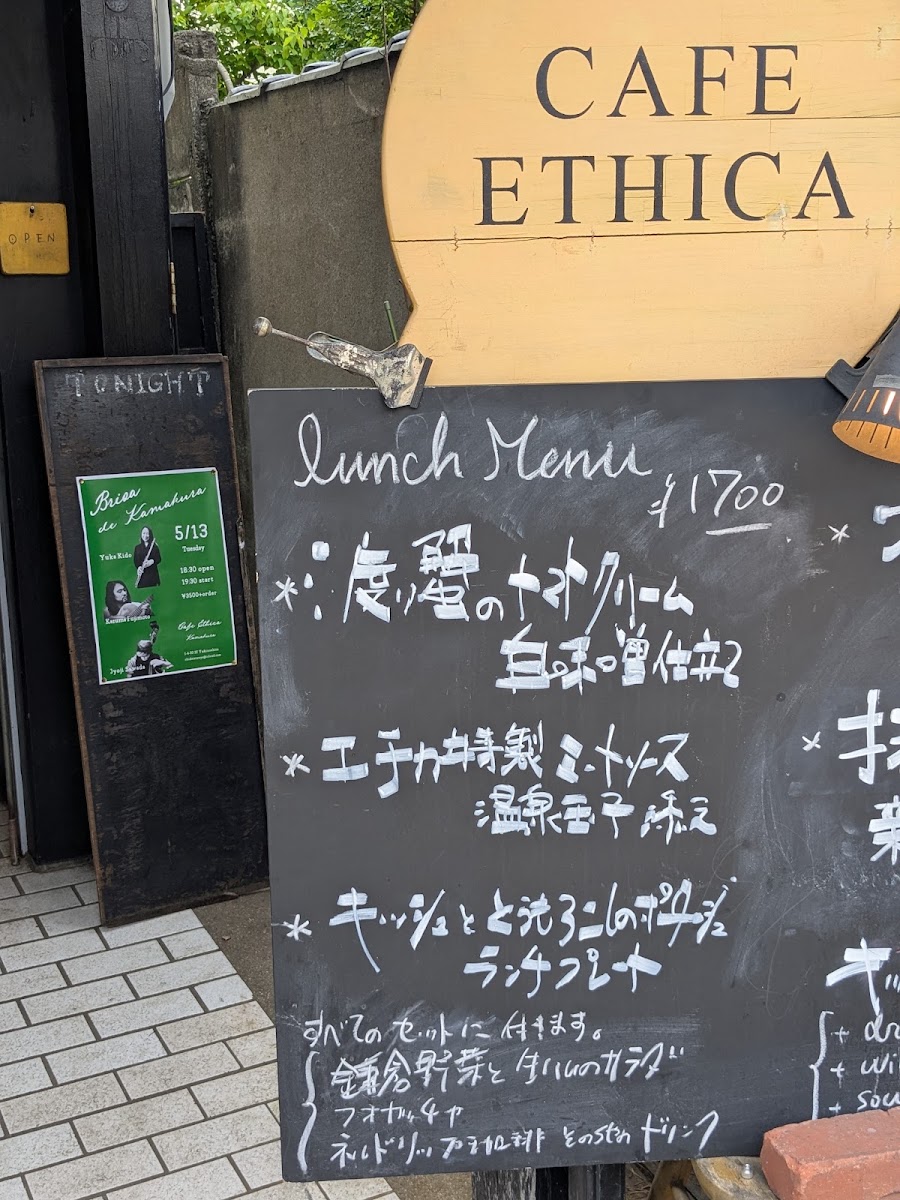 CAFE
ETHICA
OPEN
TONIGHT
Brisa
de Kamakura
5/13
Tuesday
Yuka Kido
18:30 open
19:30 start
¥3500+order
Kazuma Fujimoto
Cafe Ethica
Kamakura
Jyoji Sawada
lunch Menu
¥1700
* 渡り蟹のトマトクリーム
白味噌仕立て
* エチカ特製 ミートソース
温泉玉子添え
* キッシュと とうもろこしのポタージュ
ランチプレート
すべてのセットに付きます。
鎌倉野菜と生ハムのサラダ
フォカッチャ
ネルドリップ珈琲 その他のドリンク
*
*
キッ
+
+ wi
+ sou